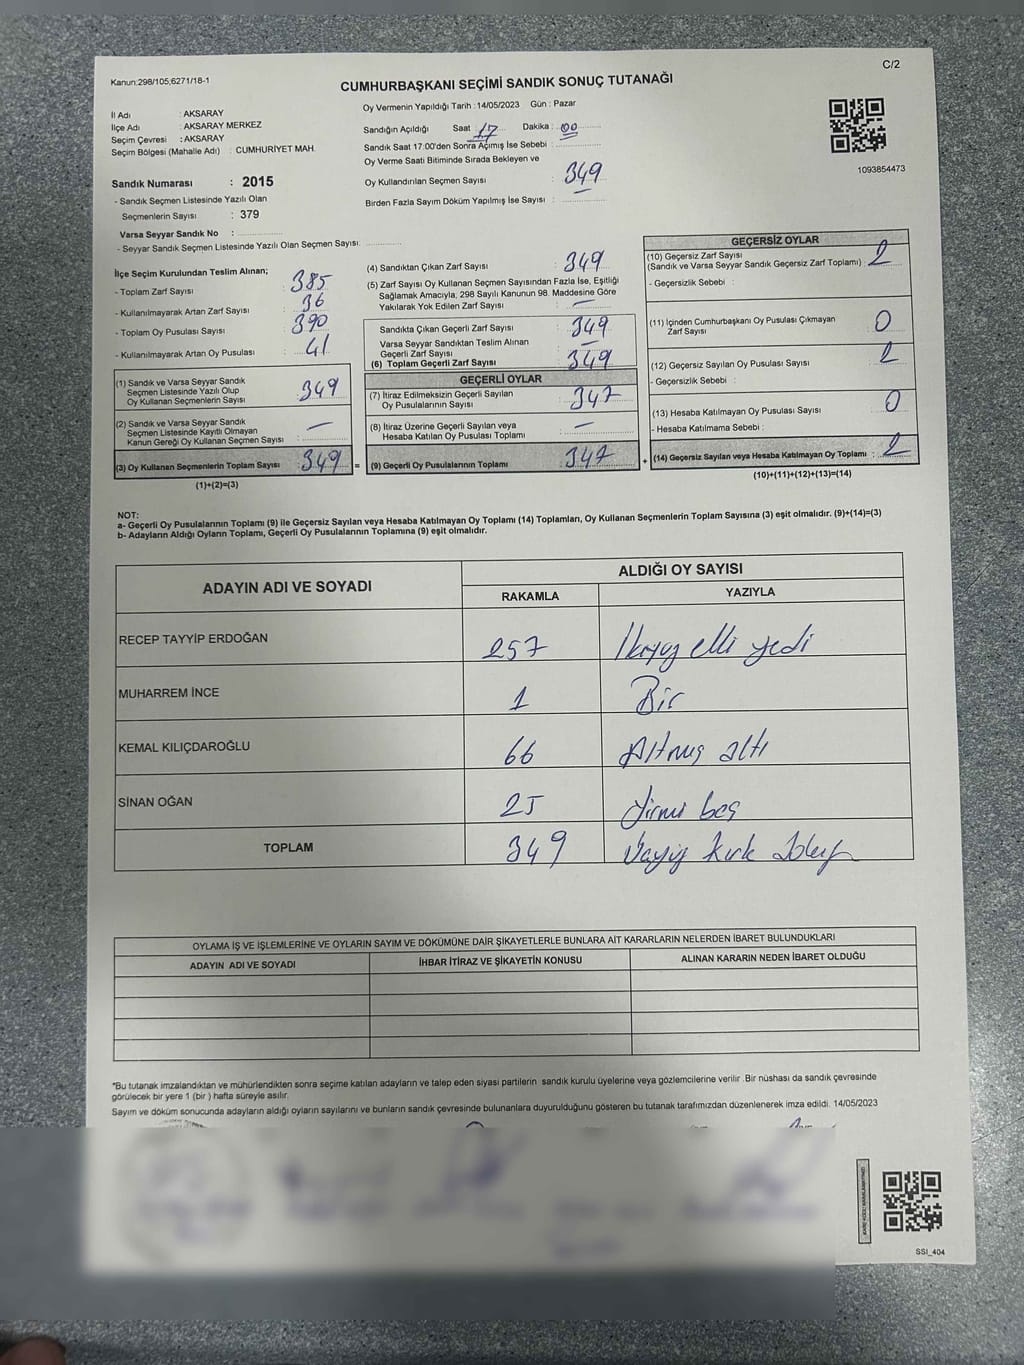 C/2
Kanun:298/105;6271/18-1
CUMHURBAŞKANI SEÇİMİ SANDIK SONUÇ TUTANAĞI
İl Adı : AKSARAY
İlçe Adı : AKSARAY MERKEZ
Seçim Çevresi : AKSARAY
Seçim Bölgesi (Mahalle Adı) : CUMHURİYET MAH.
Sandık Numarası : 2015
- Sandık Seçmen Listesinde Yazılı Olan
Seçmenlerin Sayısı : 379
Varsa Seyyar Sandık No :
- Seyyar Sandık Seçmen Listesinde Yazılı Olan Seçmen Sayısı:
Oy Vermenin Yapıldığı Tarih : 14/05/2023 Gün : Pazar
Sandığın Açıldığı Saat : 17 Dakika : 00
Sandık Saat 17:00'den Sonra Açımış İse Sebebi :
Oy Verme Saati Bitiminde Sırada Bekleyen ve
Oy Kullandırılan Seçmen Sayısı : 349
Birden Fazla Sayım Döküm Yapılmış İse Sayısı :
1093854473
İlçe Seçim Kurulundan Teslim Alınan;
- Toplam Zarf Sayısı : 385
- Kullanılmayarak Artan Zarf Sayısı : 36
- Toplam Oy Pusulası Sayısı : 390
- Kullanılmayarak Artan Oy Pusulası : 41
(1) Sandık ve Varsa Seyyar Sandık
Seçmen Listesinde Yazılı Olup
Oy Kullanan Seçmenlerin Sayısı : 349
(2) Sandık ve Varsa Seyyar Sandık
Seçmen Listesinde Kayıtlı Olmayan
Kanun Gereği Oy Kullanan Seçmen Sayısı : —
(3) Oy Kullanan Seçmenlerin Toplam Sayısı : 349 =
(1)+(2)=(3)
(4) Sandıktan Çıkan Zarf Sayısı : 349
(5) Zarf Sayısı Oy Kullanan Seçmen Sayısından Fazla İse, Eşitliği
Sağlamak Amacıyla; 298 Sayılı Kanunun 98. Maddesine Göre
Yakılarak Yok Edilen Zarf Sayısı : —
Sandıkta Çıkan Geçerli Zarf Sayısı : 349
Varsa Seyyar Sandıktan Teslim Alınan
Geçerli Zarf Sayısı : —
(6) Toplam Geçerli Zarf Sayısı : 349
GEÇERLİ OYLAR
(7) İtiraz Edilmeksizin Geçerli Sayılan
Oy Pusulalarının Sayısı : 347
(8) İtiraz Üzerine Geçerli Sayılan veya
Hesaba Katılan Oy Pusulası Toplamı : —
(9) Geçerli Oy Pusulalarının Toplamı : 347 +
GEÇERSİZ OYLAR
(10) Geçersiz Zarf Sayısı
(Sandık ve Varsa Seyyar Sandık Geçersiz Zarf Toplamı) : 2
- Geçersizlik Sebebi :
(11) İçinden Cumhurbaşkanı Oy Pusulası Çıkmayan
Zarf Sayısı : 0
(12) Geçersiz Sayılan Oy Pusulası Sayısı : 2
- Geçersizlik Sebebi :
(13) Hesaba Katılmayan Oy Pusulası Sayısı : 0
- Hesaba Katılmama Sebebi :
(14) Geçersiz Sayılan veya Hesaba Katılmayan Oy Toplamı : 2
(10)+(11)+(12)+(13)=(14)
NOT:
a- Geçerli Oy Pusulalarının Toplamı (9) ile Geçersiz Sayılan veya Hesaba Katılmayan Oy Toplamı (14) Toplamları, Oy Kullanan Seçmenlerin Toplam Sayısına (3) eşit olmalıdır. (9)+(14)=(3)
b- Adayların Aldığı Oyların Toplamı, Geçerli Oy Pusulalarının Toplamına (9) eşit olmalıdır.
ADAYIN ADI VE SOYADI ALDIĞI OY SAYISI
RAKAMLA YAZIYLA
RECEP TAYYİP ERDOĞAN 257 İkiyüz elli yedi
MUHARREM İNCE 1 Bir
KEMAL KILIÇDAROĞLU 66 Altmış altı
SİNAN OĞAN 25 Yirmi beş
TOPLAM 349 kırk
OYLAMA İŞ VE İŞLEMLERİNE VE OYLARIN SAYIM VE DÖKÜMÜNE DAİR ŞİKAYETLERLE BUNLARA AİT KARARLARIN NELERDEN İBARET BULUNDUKLARI
ADAYIN ADI VE SOYADI İHBAR İTİRAZ VE ŞİKAYETİN KONUSU ALINAN KARARIN NEDEN İBARET OLDUĞU
*Bu tutanak imzalandıktan ve mühürlendikten sonra seçime katılan adayların ve talep eden siyasi partilerin sandık kurulu üyelerine veya gözlemcilerine verilir .Bir nüshası da sandık çevresinde
görülecek bir yere 1 (bir ) hafta süreyle asılır.
Sayım ve döküm sonucunda adayların aldığı oyların sayılarını ve bunların sandık çevresinde bulunanlara duyurulduğunu gösteren bu tutanak tarafımızdan düzenlenerek imza edildi. 14/05/2023
SSI_404